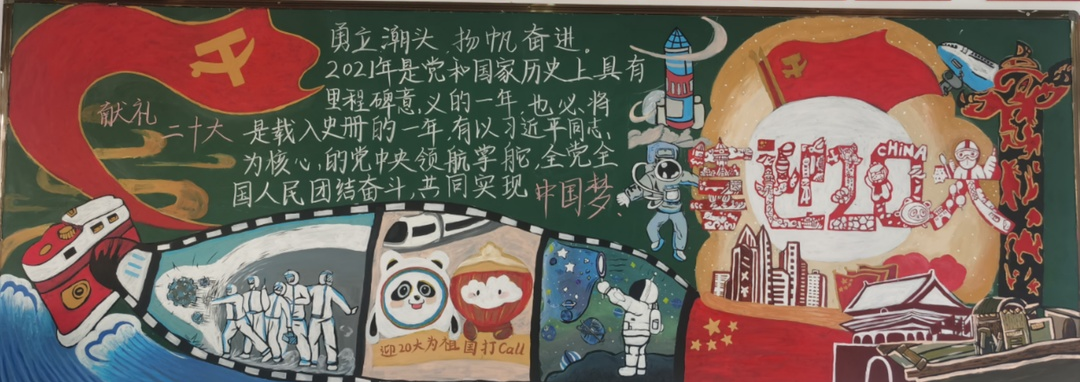 勇立潮头、扬帆奋进。
2021年是党和国家历史上具有
里程碑意义的一年,也必将
是载入史册的一年,有以习近平同志
为核心的党中央领航掌舵,全党全
国人民团结奋斗,共同实现中国梦!
献礼
二十大
喜迎20大
CHINA
迎20大为祖国打Call